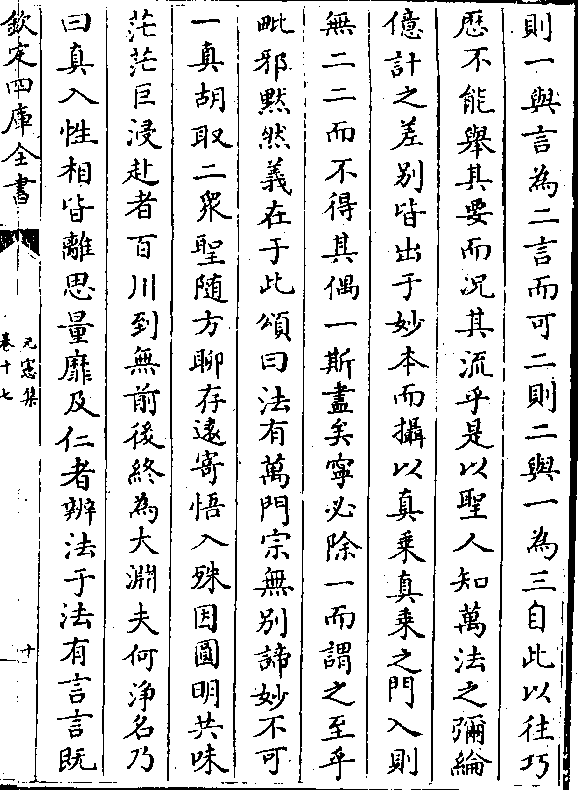 則一與言為二言而可二則二與一為三自此以往巧
厯不能舉其要而况其流乎是以聖人知萬法之彌綸
億計之差别皆出于妙本而攝以真乗真乗之門入則
無二二而不得其偶一斯盡矣寧必除一而謂之至乎
毗邪黙然義在于此頌曰法有萬門宗無别諦妙不可
一真胡取二衆聖随方聊存逺寄悟入殊因圓明共味
茫茫巨浸赴者百川到無前後終為大淵夫何淨名乃
曰真入性相皆離思量靡及仁者辨法于法有言言既
欽定四庫全書
元憲集
卷十七
十